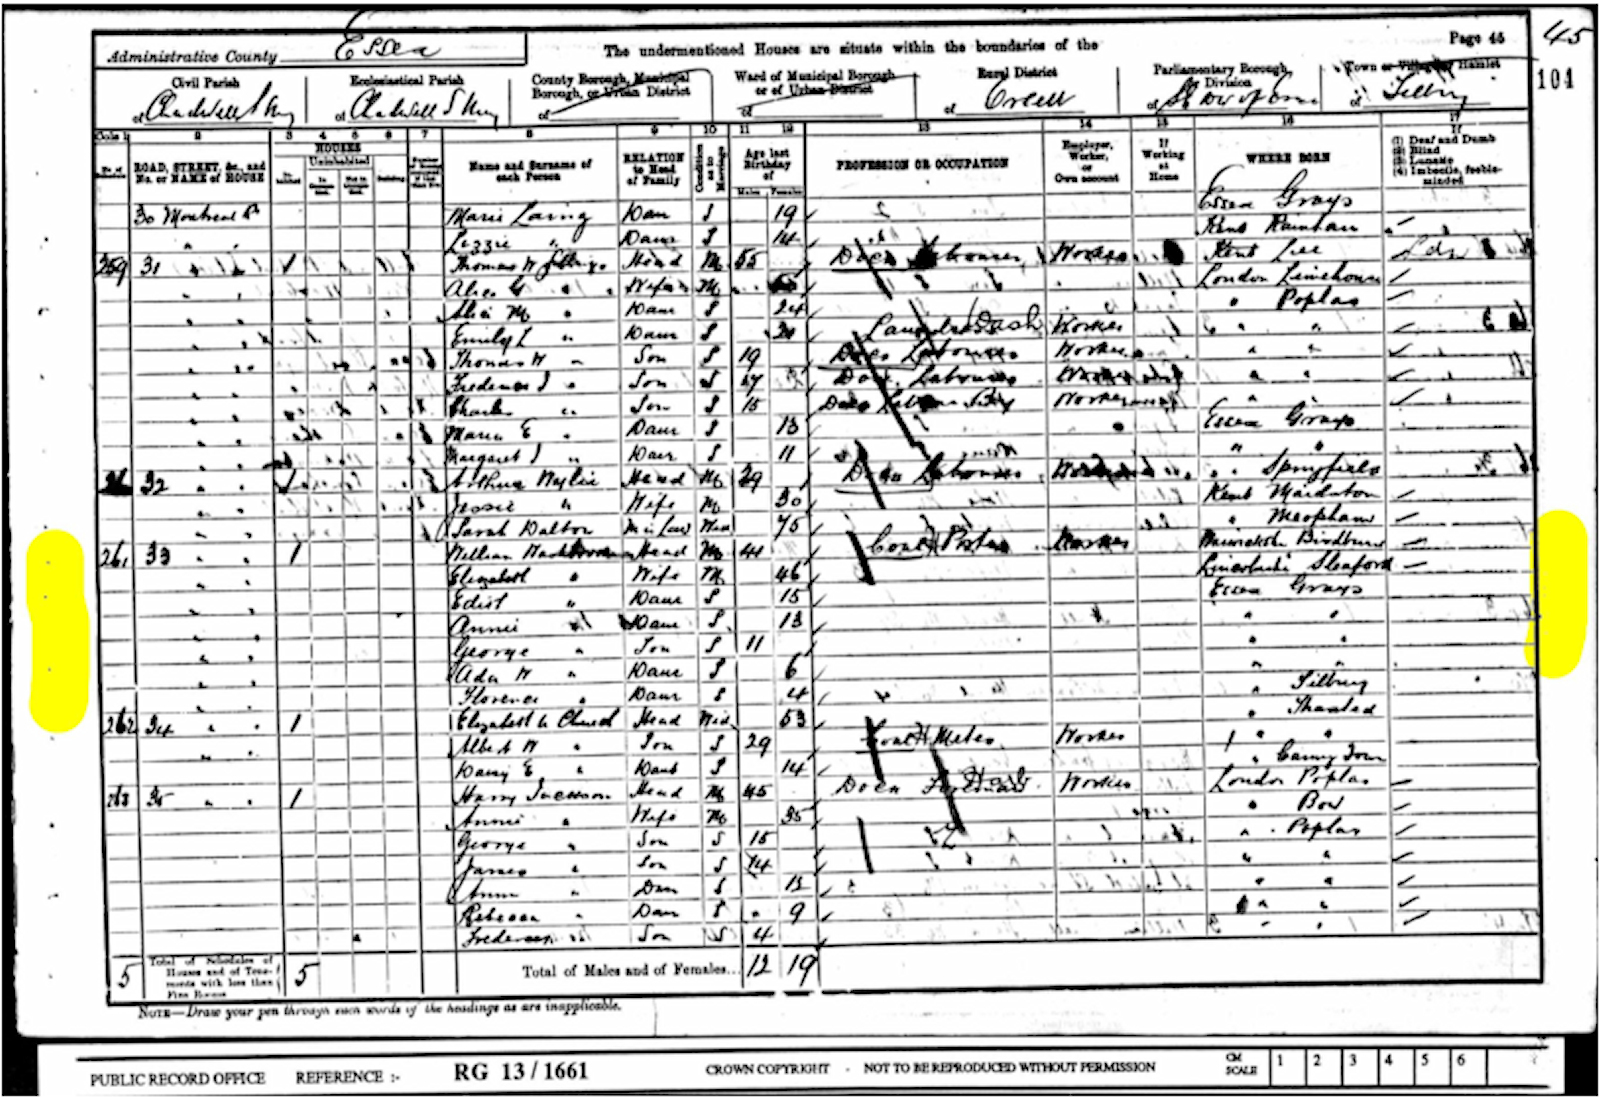 Administrative County Essex
The undermentioned Houses are situate within the boundaries of the
Page 45
45
104
Civil Parish
of Chadwell St Mary
Ecclesiastical Parish
of Chadwell St Mary
County Borough, Municipal Borough, or Urban District
of
Ward of Municipal Borough or of Urban District
of
Rural District
of Orsett
Parliamentary Borough, Division
of
Town or Village or Hamlet
of Tilbury
Cols 1 2 3 4 5 6 7 8 9 10 11 12 13 14 15 16 17
No. of
ROAD, STREET, &c., and No. or NAME of HOUSE
HOUSES
Uninhabited
Name and Surname of each Person
RELATION to Head of Family
Condition as to Marriage
Age last Birthday of
Males Females
PROFESSION OR OCCUPATION
Employer, Worker, or Own account
If Working at Home
WHERE BORN
If
(1) Deaf and Dumb
(2) Blind
(3) Lunatic
(4) Imbecile, feeble-minded
30 Montreal Rd Marie Laing Daur S 19 Essex Grays
" " Lizzie " Daur S 14 Kent Rainham
259 31 " " 1 Thomas W Head M 55 Dock Labourer Worker Kent Lee
" " Alice " Wife M London Limehouse
" " Alice M " Daur S 24 " Poplar
" " Emily L " Daur S Worker " "
" " Thomas W " Son S 19 Dock Labourer Worker " "
" " Frederick J " Son S 17 Dock Labourer Worker " "
" " Charles " Son S 15 Dock Worker "
" " Maria E " Daur S 13 Essex Grays
" " Margaret J " Daur S 11 " "
32 " " 1 Arthur Wylie Head M 29 Dock Labourer Worker " Springfield
" " Jessie " Wife M 30 Kent Maidston
" " Sarah Dalton M in Law Wid 75 " Meopham
261 33 " " 1 William Head M 41 Coal Porter Worker
" " Elizabeth " Wife M 46 Sleaford
" " Edist " Daur S 15 Essex Grays
" " Annie " Daur S 13 " "
" " George " Son S 11 " "
" " Ada W " Daur S 6 " "
" " Florence " Daur S 4 " Tilbury
262 34 " " 1 Elizabeth Church Head Wid 53 " Thaxted
" " Albert W " Son S 29 Worker " "
" " Daisy E " Daur S 14 " Canng Town
263 35 " " 1 Harry Jackson Head M 45 Dock Worker London Poplar
Annie " Wife M 35 " Bow
George " Son S 15 " Poplar
James " Son S 14 " "
Annie " Daur S 12 " "
Rebecca " Daur S 9 " "
Frederick " Son S 4 " "
5 Total of Schedules of Houses and of Tenements with less than Five Rooms 5 Total of Males and of Females... 12 19
NOTE—Draw your pen through such words of the headings as are inapplicable.
PUBLIC RECORD OFFICE REFERENCE :- RG 13/1661 CROWN COPYRIGHT - NOT TO BE REPRODUCED WITHOUT PERMISSION CM SCALE 1 2 3 4 5 6